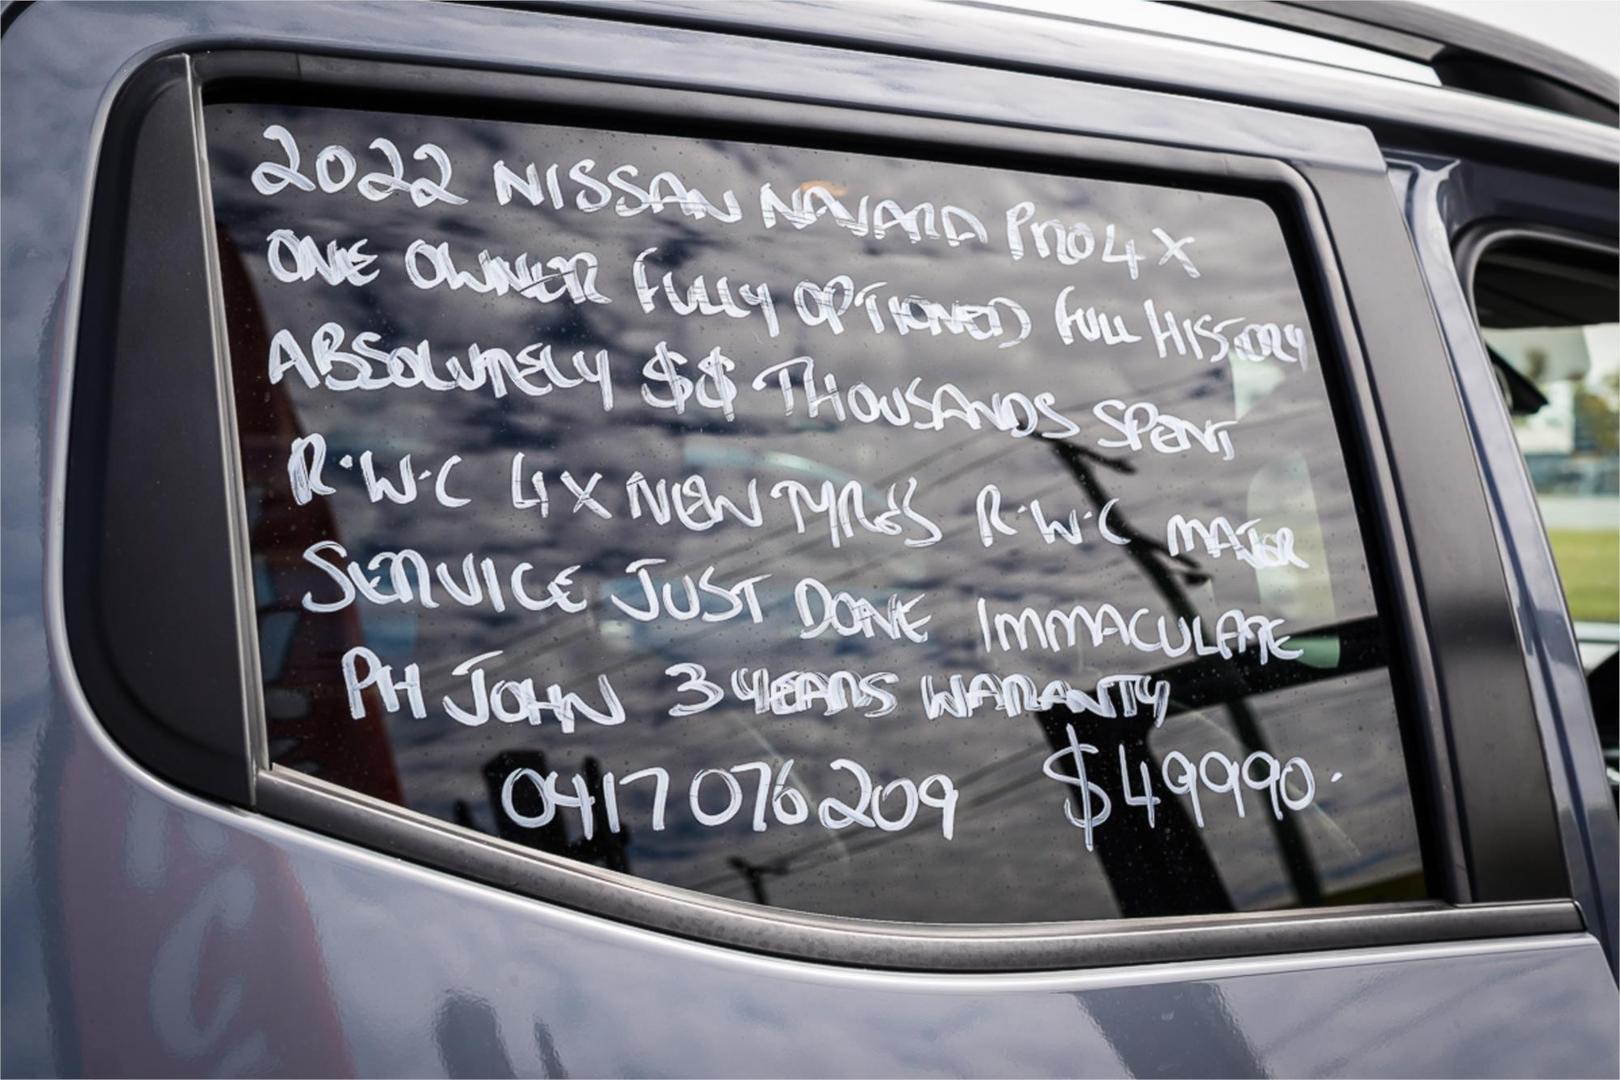 2022 NISSAN NAVARA PRO4X
ONE OWNER FULLY OPTIONED FULL HISTORY
ABSOLUTELY $$ THOUSANDS SPENT
R.W.C 4X NEW TYRES R.W.C MAJOR
SERVICE JUST DONE IMMACULATE
PH JOHN 3 YEARS WARANTY
0417 076 209 $49990.